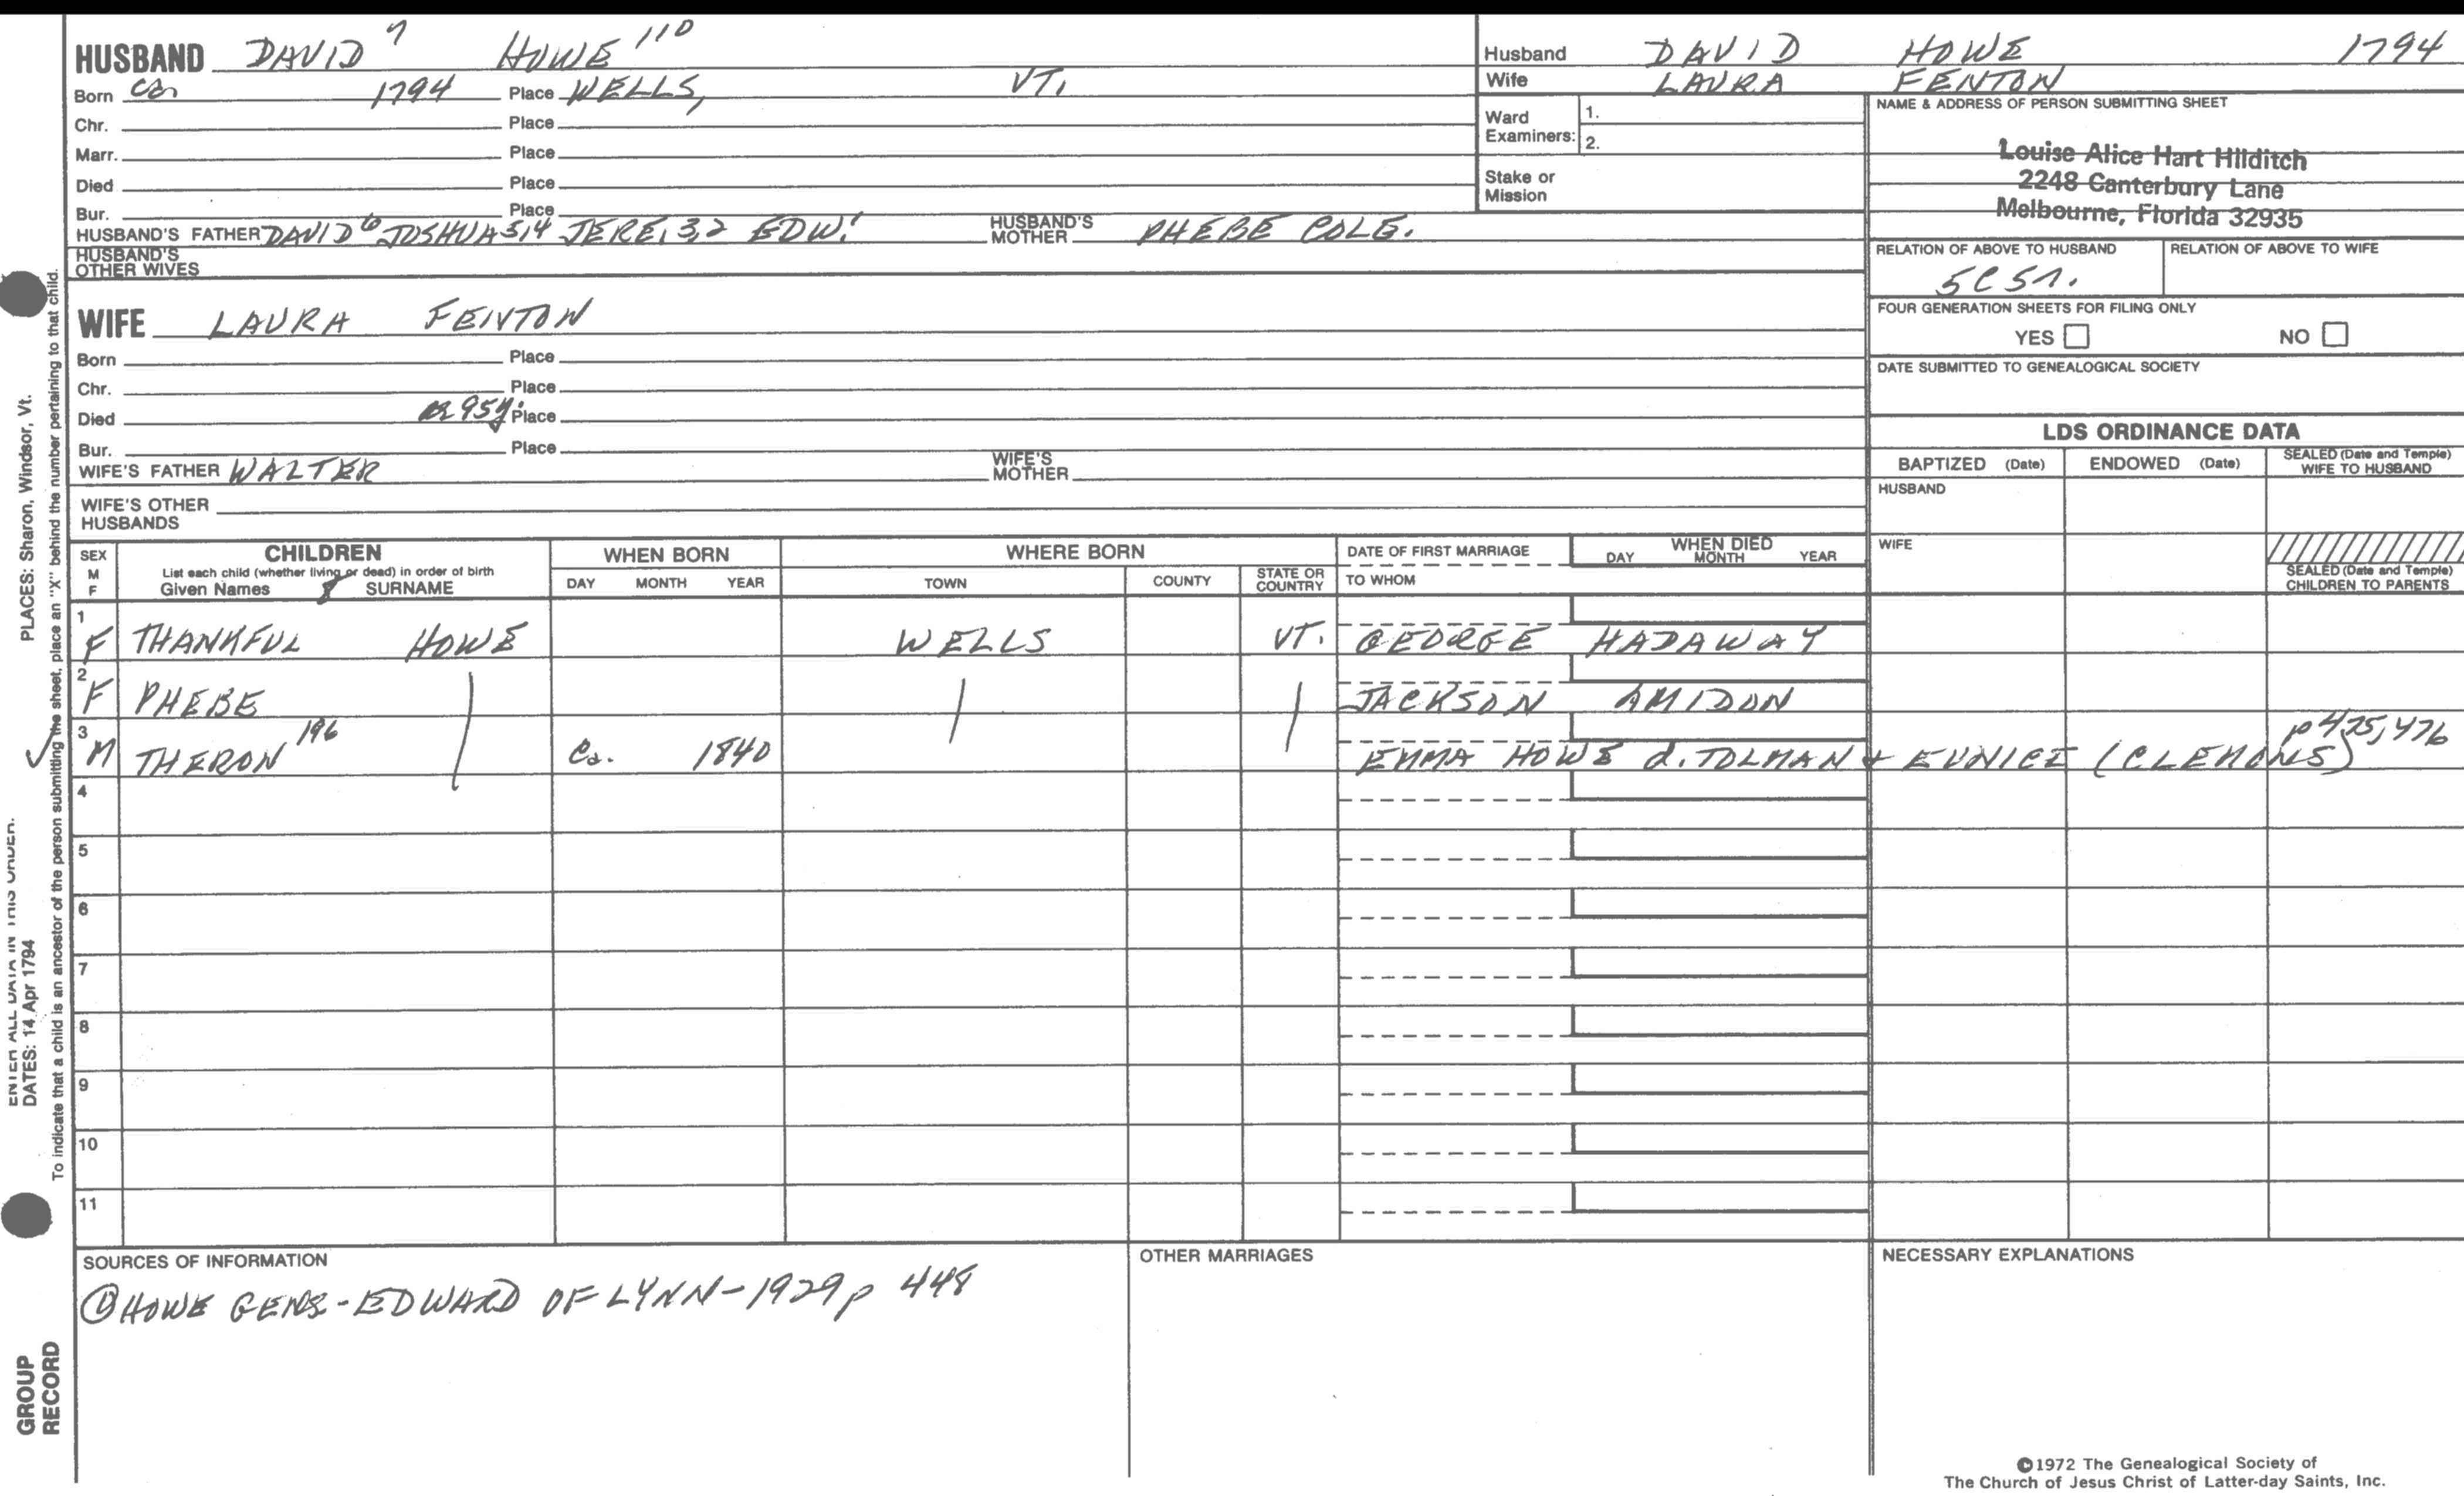 HUSBAND DAVID 7 HOWE 110
Born ca 1794 Place WELLS, VT.
Chr. Place
Marr. Place
Died Place
Bur. Place
HUSBAND'S FATHER DAVID 6 JOSHUA 5,4 JERE. 3,2 EDW. 1 HUSBAND'S MOTHER PHEBE COLE.
HUSBAND'S OTHER WIVES
Husband DAVID HOWE 1794
Wife LAURA FENTON
Ward Examiners: 1.
2.
Stake or Mission
NAME & ADDRESS OF PERSON SUBMITTING SHEET
Louise Alice Hart Hilditch
2248 Canterbury Lane
Melbourne, Florida 32935
RELATION OF ABOVE TO HUSBAND RELATION OF ABOVE TO WIFE
FOUR GENERATION SHEETS FOR FILING ONLY
YES NO
DATE SUBMITTED TO GENEALOGICAL SOCIETY
WIFE LAURA FENTON
Born Place
Chr. Place
Died 95y. Place
Bur. Place
WIFE'S FATHER WALTER WIFE'S MOTHER
WIFE'S OTHER HUSBANDS
LDS ORDINANCE DATA
BAPTIZED (Date) ENDOWED (Date) SEALED (Date and Temple) WIFE TO HUSBAND
HUSBAND
WIFE
SEALED (Date and Temple) CHILDREN TO PARENTS
SEX M F
CHILDREN
List each child (whether living or dead) in order of birth
Given Names 8 SURNAME
WHEN BORN
DAY MONTH YEAR
WHERE BORN
TOWN COUNTY STATE OR COUNTRY
DATE OF FIRST MARRIAGE
TO WHOM
WHEN DIED
DAY MONTH YEAR
1 F THANKFUL HOWE WELLS VT. GEORGE HADAWAY
2 F PHEBE JACKSON AMIDON
3 M THERON 196 Ca. 1840 EMMA HOWE d. TOLMAN + EUNICE (CLEMONS) p 475, 476
4
5
6
7
8
9
10
11
SOURCES OF INFORMATION
① HOWE GENS - EDWARD OF LYNN - 1929 p 448
OTHER MARRIAGES
NECESSARY EXPLANATIONS
©1972 The Genealogical Society of
The Church of Jesus Christ of Latter-day Saints, Inc.
PLACES: Sharon, Windsor, Vt.
ENTER ALL DATA IN THIS ORDER.
DATES: 14 Apr 1794
To indicate that a child is an ancestor of the person submitting the sheet, place an "X" behind the number pertaining to that child.
GROUP
RECORD